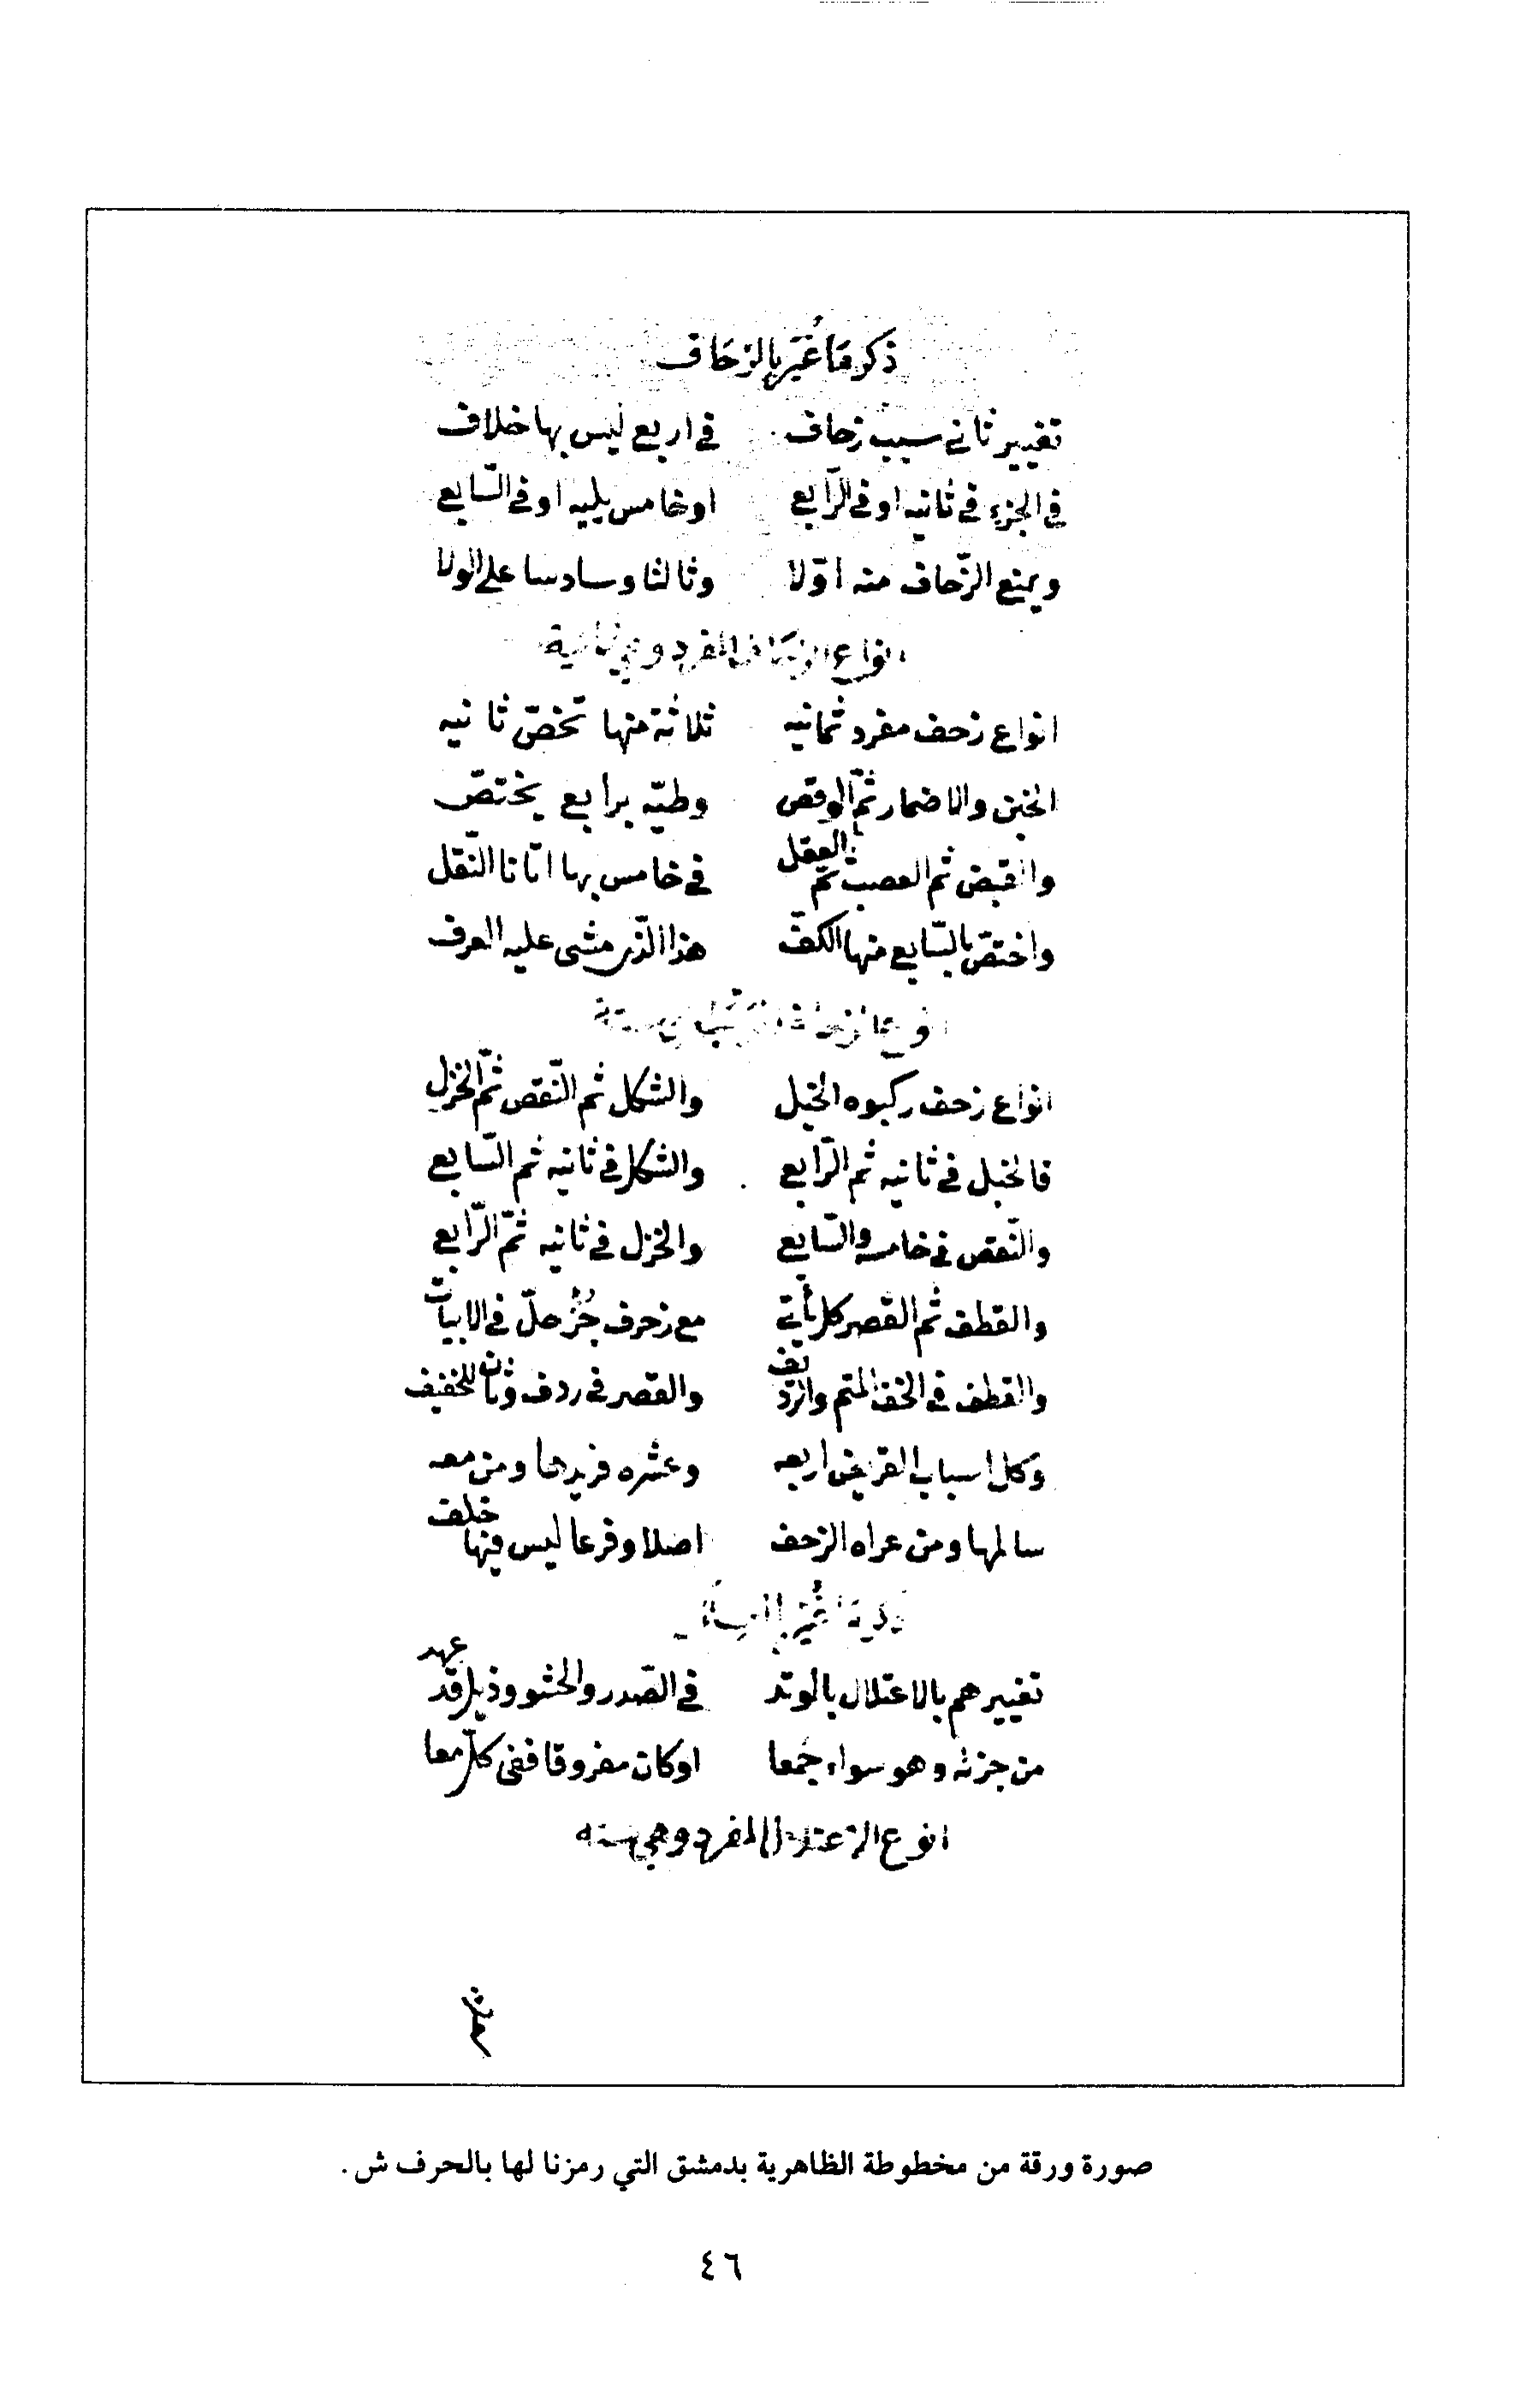 ذكر ما غُيّر بالزحاف
تغيير ثاني سبب زحاف في اربع ليس بها خلاف
في الجزء في ثانيه او في الرّابع او خامس يليه او في السّابع
ويمنع الزّحاف منه اوّلا وثالثا وسادسا على الولا
انواع الزحاف المفرد وهي ثمانية
انواع زحف مفرد ثمانيه ثلاثة منها تخصّ ثانيه
الخبن والاضمار ثمّ الوقص وطيّه برابع يختصّ
والقبض ثم العصب ثم العقل في خامس بها اتانا النّقل
واختصّ بالسّابع منها الكفّ هذا الّذى مشى عليه العرف
انواع الزحاف المركب وهي ستة
انواع زحف ركبوه الخبل والشكل ثم النّقص ثمّ الخزل
فالخبل في ثانيه ثم الرّابع والشكل في ثانيه ثم السّابع
والنّقص في خامسه والسّابع والخزل في ثانيه ثمّ الرّابع
والقطف ثم القصر كل يأتي مع زحرف جُزْ حلّ في الابيات
والقطف في الخف المتم والرّديف والقصر في ردف وثان للخفيف
وكل اسباب القريض اربعه وعشره فريدها ومن معه
سالمها ومن عراه الزحف اصلا وفرعا ليس فيها خلف
تغييرهم بالاعتلال بالوتد في الصّدر والحشو وذيل قد عهد
من جزئه وهو سواء جُمعا او كان مفروقا ففى كلّ معا
انوع الاعتلال المفرد وهي سته
صورة ورقة من مخطوطة الظاهرية بدمشق التي رمزنا لها بالحرف ش.
٤٦